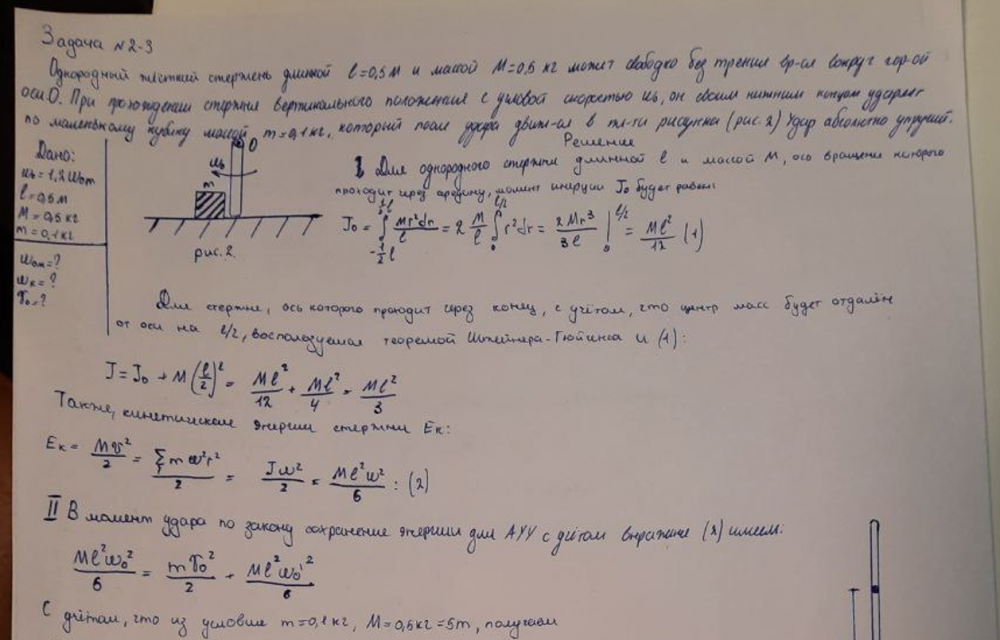 Задача №2-3
Однородный жёсткий стержень длиной l=0,5м и массой M=0,5 кг может свободно без трения вр-ся вокруг гор-ой
оси О. При прохождении стержня вертикального положения с угловой скоростью ω₀, он своим нижним концом ударяет
по маленькому кубику массой m=0,1кг, который после удара движ-ся в пл-ти рисунка (рис.2) Удар абсолютно упругий.
Дано:
ω₀=1,2ω₀m
l=0,5м
M=0,5кг
m=0,1кг
ω₀m=?
ωк=?
υ₀=?
О
ω₀
m
рис.2
Решение
I Для однородного стержня длинной l и массой M, ось вращения которого
проходит через середину, момент инерции J₀ будет равен:
J₀ = ∫_{-½l}^{½l} Mr²dr/l = 2 M/l ∫_0^{l/2} r²dr = 2Mr³/3l |_0^{l/2} = Ml²/12 (1)
Для стержня, ось которого проходит через конец, с учётом, что центр масс будет отдалён
от оси на l/2, воспользуемся теоремой Штейнера-Гюйгенса и (1):
J = J₀ + M(l/2)² = Ml²/12 + Ml²/4 = Ml²/3
Также, кинетическая энергия стержня Eк:
Eк = Mυ²/2 = ∑mω²r²/2 = Jω²/2 = Ml²ω²/6 : (2)
II В момент удара по закону сохранение энергии для АУУ с учётом выражение (2) имеем:
Ml²ω₀²/6 = mυ₀²/2 + Ml²ω₀'²/6
С учётом, что из условия m=0,1кг, M=0,5кг=5m, получаем